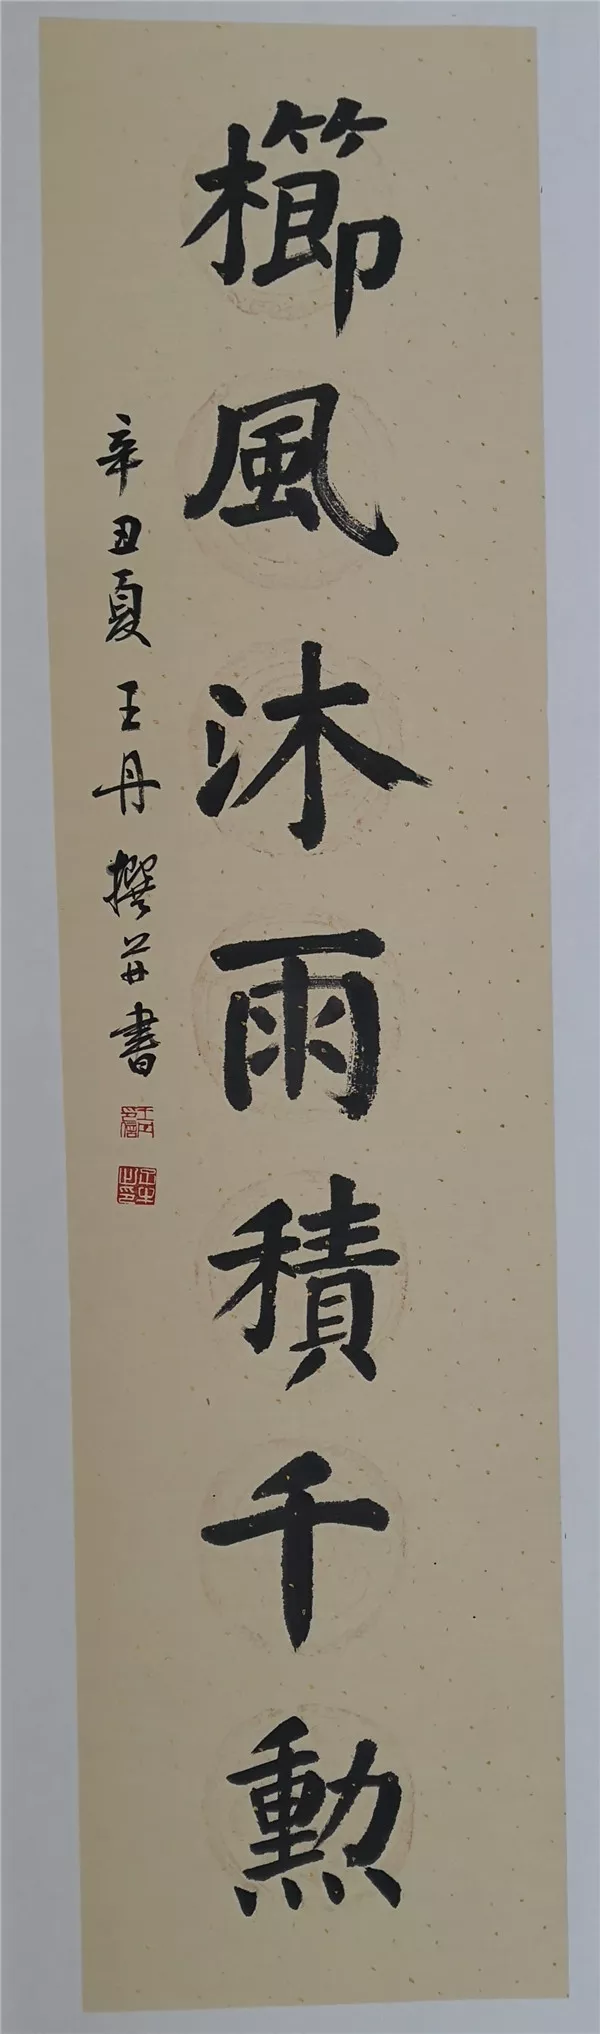 櫛風沐雨積千勲
辛丑夏王丹撰并書